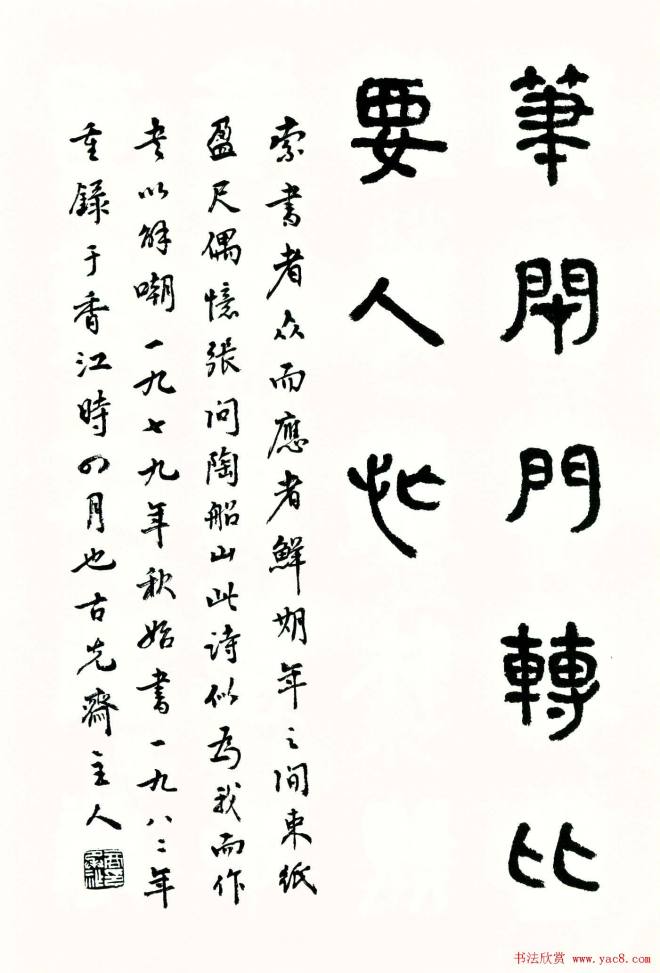 筆閉門轉比
要人忙
索書者众而應者鮮期年之间束紙
盈尺偶憶張问陶船山此詩似为我而作
書以解嘲一九七九年秋始書一九八二年
重錄于香江時四月也古先齋主人
书法欣赏 www.yac8.com